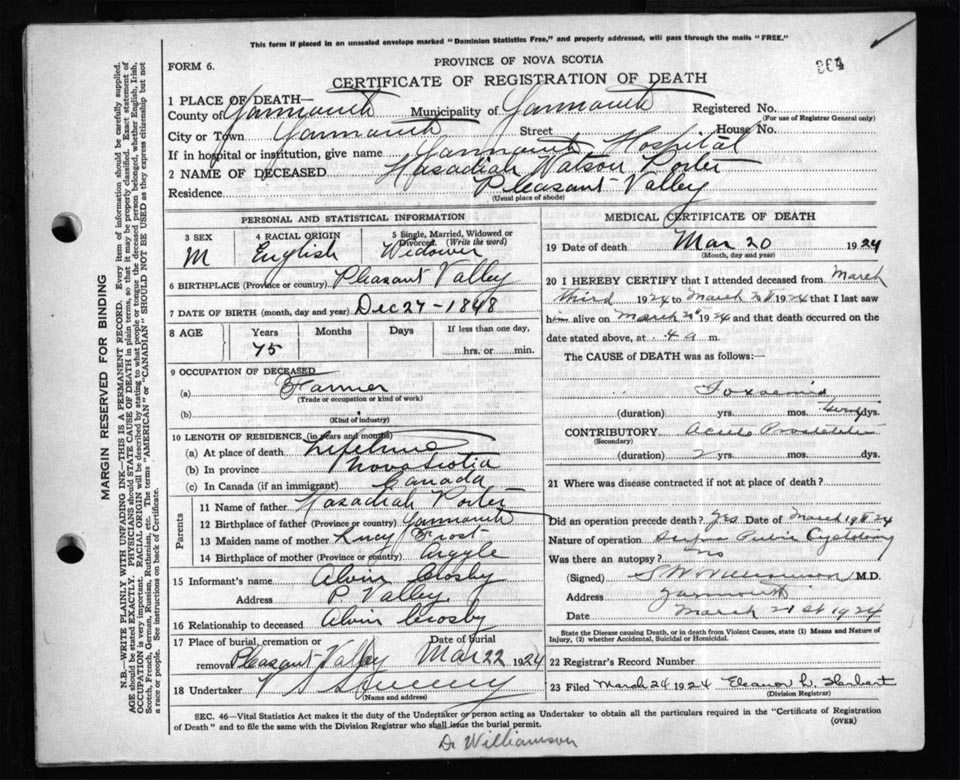 This form if placed in an unsealed envelope marked "Dominion Statistics Free," and properly addressed, will pass through the mails "FREE."
FORM 6.
PROVINCE OF NOVA SCOTIA
CERTIFICATE OF REGISTRATION OF DEATH
1 PLACE OF DEATH—
County of Yarmouth Municipality of Yarmouth Registered No.
(For use of Registrar General only)
City or Town Yarmouth Street House No.
If in hospital or institution, give name Yarmouth Hospital
2 NAME OF DECEASED Hasadiah Watson Porter
Residence Pleasant Valley
(Usual place of abode)
PERSONAL AND STATISTICAL INFORMATION
3 SEX
M
4 RACIAL ORIGIN
English
5 Single, Married, Widowed or Divorced (Write the word)
Widower
6 BIRTHPLACE (Province or country) Pleasant Valley
7 DATE OF BIRTH (month, day and year) Dec 27-1848
8 AGE Years Months Days If less than one day,
75 hrs. or min.
9 OCCUPATION OF DECEASED
(a) Farmer
(Trade or occupation or kind of work)
(b)
(Kind of industry)
10 LENGTH OF RESIDENCE (in years and months)
(a) At place of death Lifetime
(b) In province Nova Scotia
(c) In Canada (if an immigrant) Canada
Parents
11 Name of father Hasadiah Porter
12 Birthplace of father (Province or country) Yarmouth
13 Maiden name of mother Lucy Frost
14 Birthplace of mother (Province or country) Argyle
15 Informant's name Alvin Crosby
Address P. Valley
16 Relationship to deceased Alvin Crosby
17 Place of burial, cremation or removal Pleasant Valley
Date of Burial Mar 22 1924
18 Undertaker V S Sweeny
(Name and address)
MEDICAL CERTIFICATE OF DEATH
19 Date of death Mar 20 1924
(Month, day and year)
20 I HEREBY CERTIFY that I attended deceased from March
third 1924 to March 1924 that I last saw
him alive on March 1924 and that death occurred on the
date stated above, at 4 a m.
The CAUSE of DEATH was as follows:—
Toxaemia
(duration) yrs. mos. dys.
CONTRIBUTORY Acute
(Secondary)
(duration) 2 yrs. mos. dys.
21 Where was disease contracted if not at place of death?
Did an operation precede death? Yes Date of March 19 24
Nature of operation Supra Pubic Cystotomy
Was there an autopsy? no
(Signed) S W Williamson M.D.
Address Yarmouth
Date March 21st 1924
State the Disease causing Death, or in death from Violent Causes, state (1) Means and Nature of Injury, (2) whether Accidental, Suicidal or Homicidal.
22 Registrar's Record Number
23 Filed March 24 1924 Eleanor L. Herbert
(Division Registrar)
SEC. 46—Vital Statistics Act makes it the duty of the Undertaker or person acting as Undertaker to obtain all the particulars required in the "Certificate of Registration
of Death" and to file the same with the Division Registrar who shall issue the burial permit. (OVER)
Dr Williamson
MARGIN RESERVED FOR BINDING
N.B.—WRITE PLAINLY WITH UNFADING INK—THIS IS A PERMANENT RECORD. Every item of information should be carefully supplied.
AGE should be stated EXACTLY. PHYSICIANS should STATE CAUSE OF DEATH in plain terms, so that it may be properly classified. Exact statement of
OCCUPATION is very important. RACIAL ORIGIN will be described by stating to what people or tongue the deceased person belonged, whether English, Irish,
Scotch, French, German, Russian, Ruthenian, etc. The terms "AMERICAN" or "CANADIAN" SHOULD NOT BE USED as they express citizenship but not
a race or people. See instructions on back of Certificate.